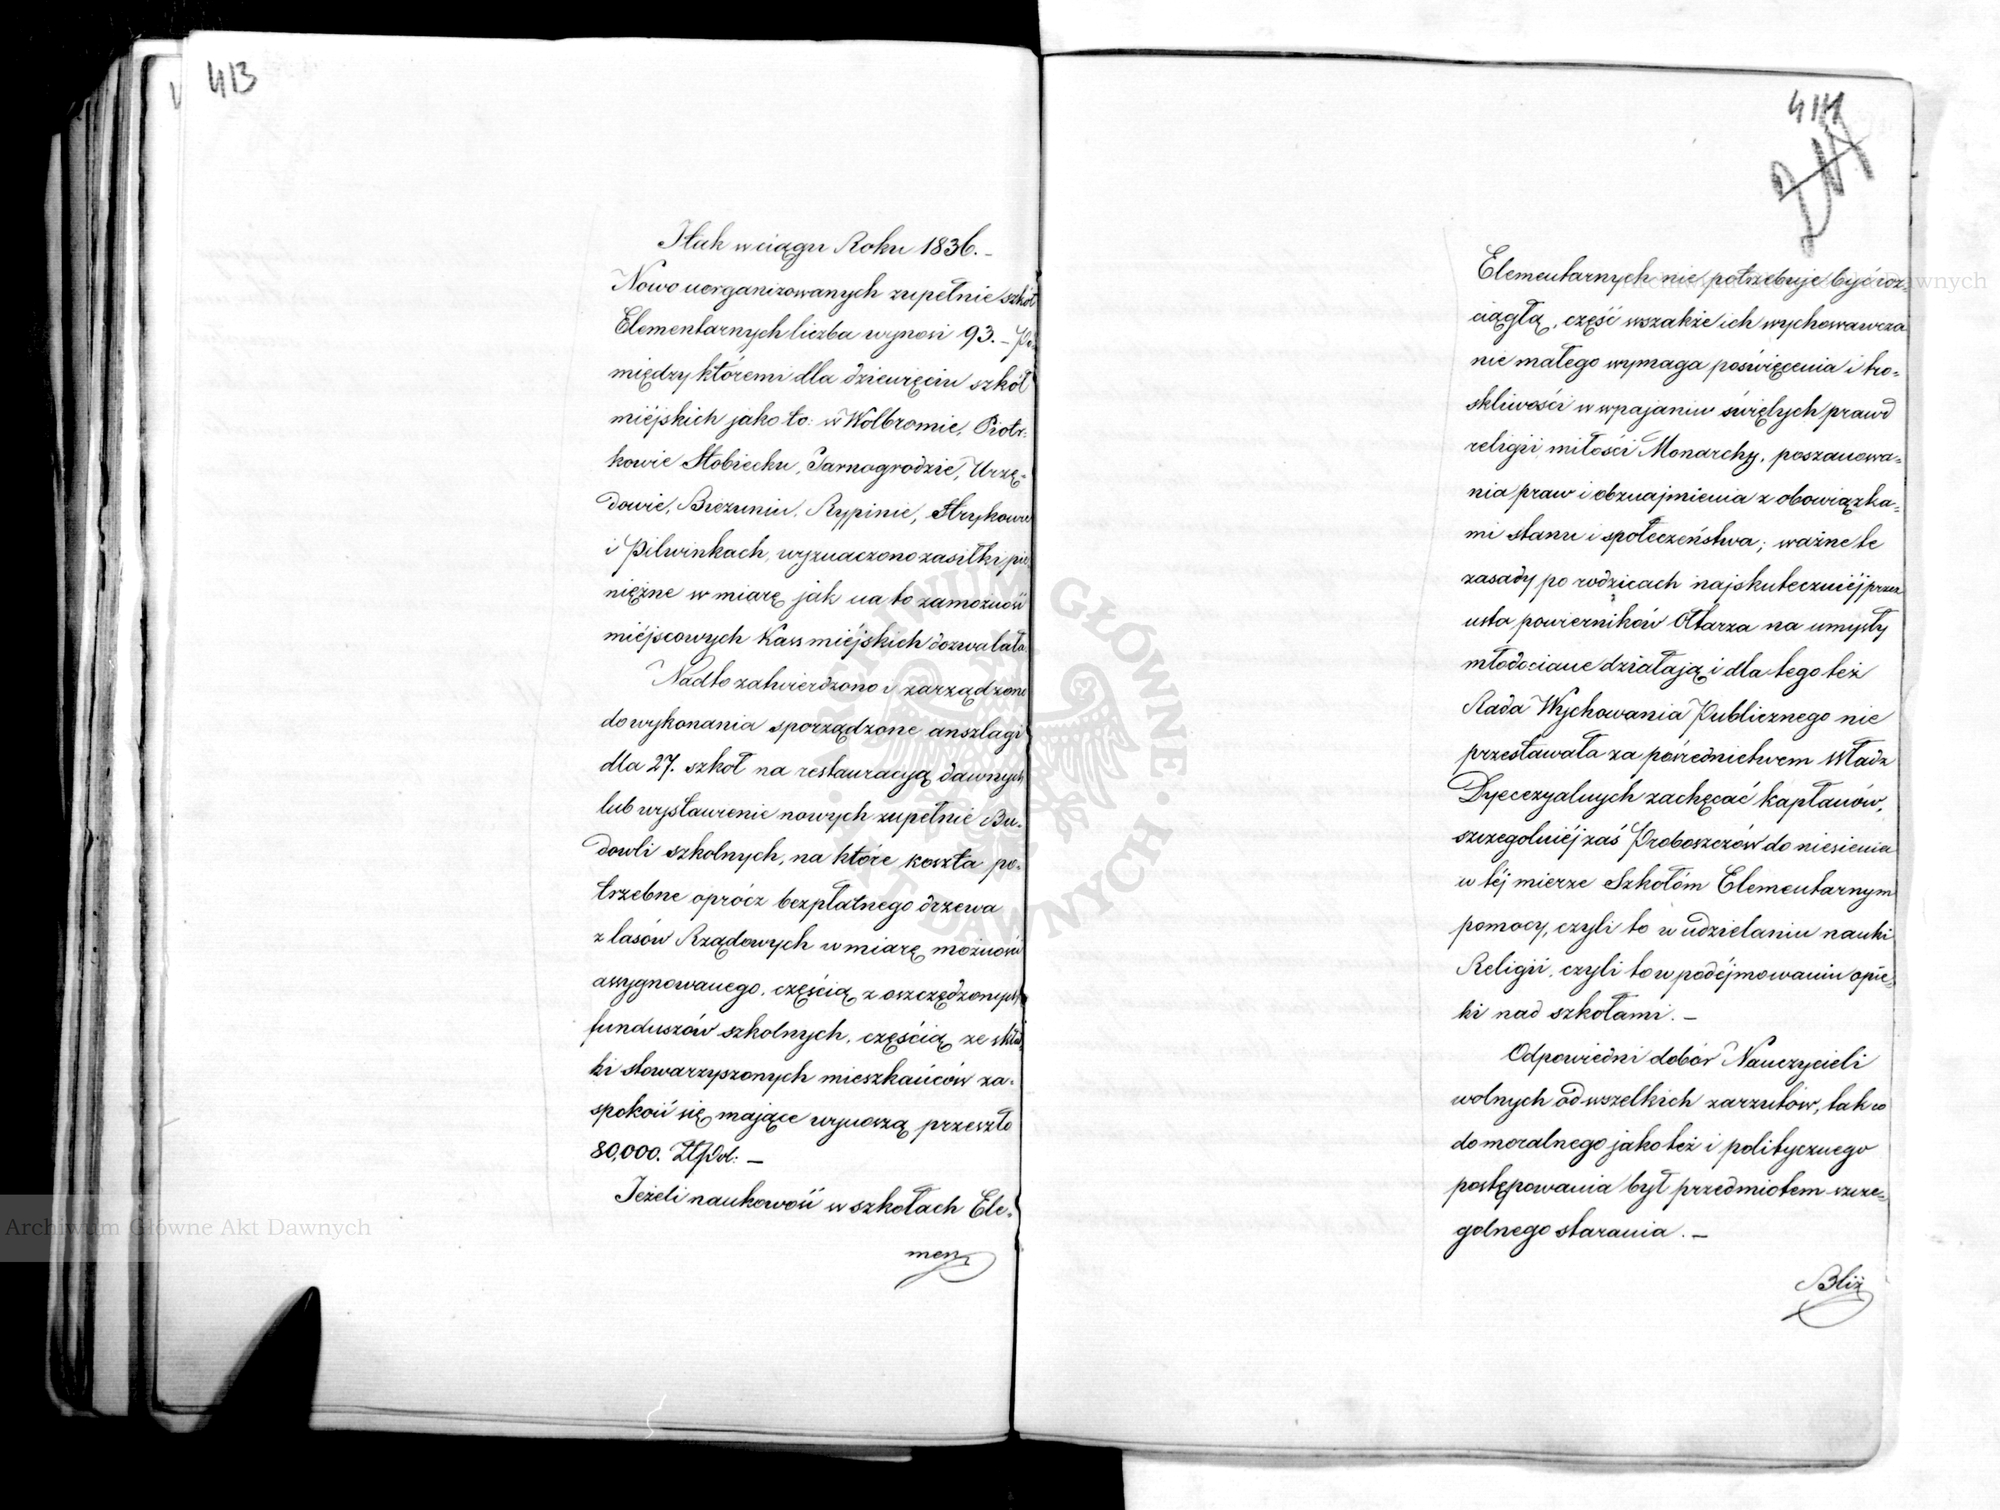 413
I tak w ciągu Roku 1836.–
Nowo uorganizowanych zupełnie szkół
Elementarnych liczba wynosi 93. – Po
między któremi dla dziewięciu szkół
miéjskich jako to: w Wolbromie, Piotr-
kowie Kłobucku, Tarnogrodzie, Urzę-
dowie, Bieżuniu, Rypinie, Strykowie
i Pilwinkach, wyznaczono zasiłki pie-
niężne w miarę jak na to zamożność
miéjscowych Kass miéjskich dozwalała.
Nadto zatwierdzono i zarządzono
do wykonania sporządzone anszlagi
dla 27. szkół na restauracyą dawnych
lub wystawienie nowych zupełnie Bu-
dowli szkolnych, na które koszta po-
trzebne oprócz bezpłatnego drzewa
z lasów Rządowych w miarę możności
assygnowanego, częścią z oszczędzonych
funduszów szkolnych, częścią ze skład-
ki stowarzyszonych mieszkańców za-
spokoić się mające wynoszą przeszło
80,000. Złpol: –
Jeżeli naukowość w szkołach Ele-
men
414
Elementarnych nie potrzebuje być roz-
ciągłą, część wszakże ich wychowawcza
nie małego wymaga poświęcenia i tro-
skliwości w wpajaniu świętych prawd
religii miłości Monarchy, poszanowa-
nia praw i obznajmienia z obowiązka-
mi stanu i społeczeństwa; ważne te
zasady po rodzicach najskuteczniéj przez
usta powierników Ołtarza na umysły
młodociane działają i dla tego też
Rada Wychowania Publicznego nie
przestawała za pośrednictwem Władz
Dyecezyalnych zachęcać kapłanów,
szczególniéj zaś Proboszczów do niesienia
w téj mierze Szkołóm Elementarnym
pomocy, czyli to w udzielaniu nauki
Religii, czyli to w podéjmowaniu opie-
ki nad szkołami. –
Odpowiedni dobór Nauczycieli
wolnych od wszelkich zarzutów, tak co
do moralnego jako też i politycznego
postępowania był przedmiotem szcze-
gólnego starania. –
Bliż
Archiwum Główne Akt Dawnych
ARCHIWUM GŁÓWNE AKT DAWNYCH